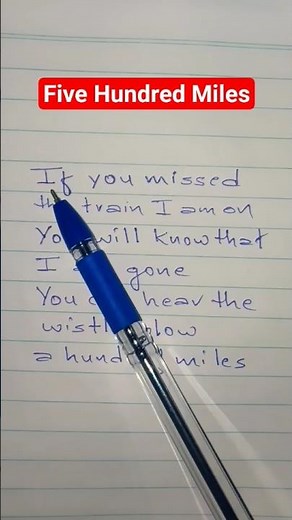 Five Hundred Miles
If you missed
the train I am on
You will know that
I gone
You hear the
wistle blow
a hundred miles